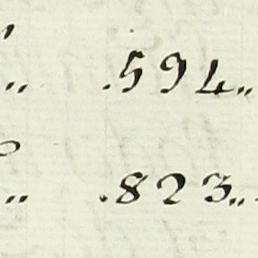 „ .594„
„ .823„